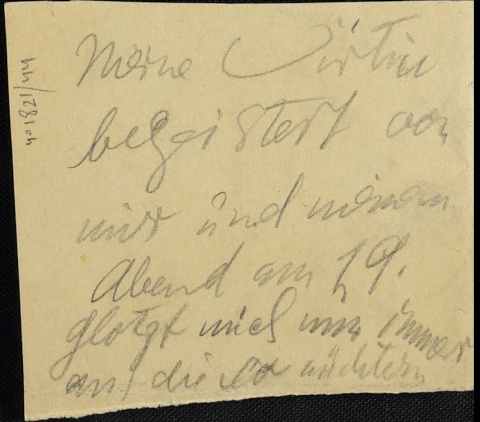 Meine Wirtin
begeistert von
mir und meinem
Abend am 19.
glotzt mich nun immer
an, die nüchtern